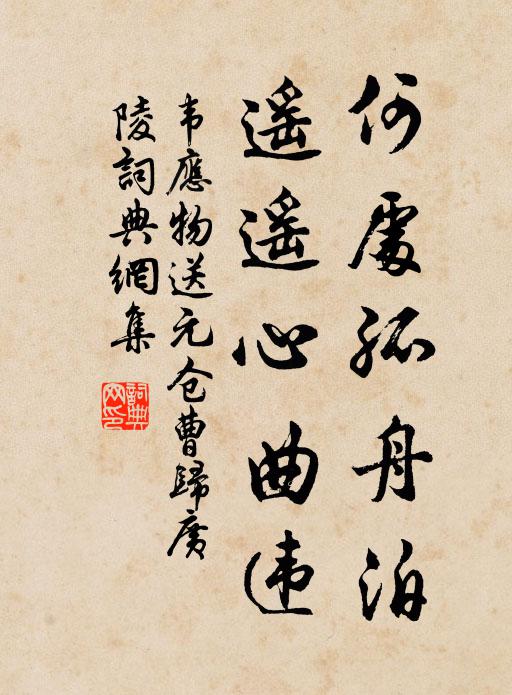 何處孤舟泊
遥遥心曲违
韦應物送元仓曹歸廣
陵詞典網集
詞典
网印